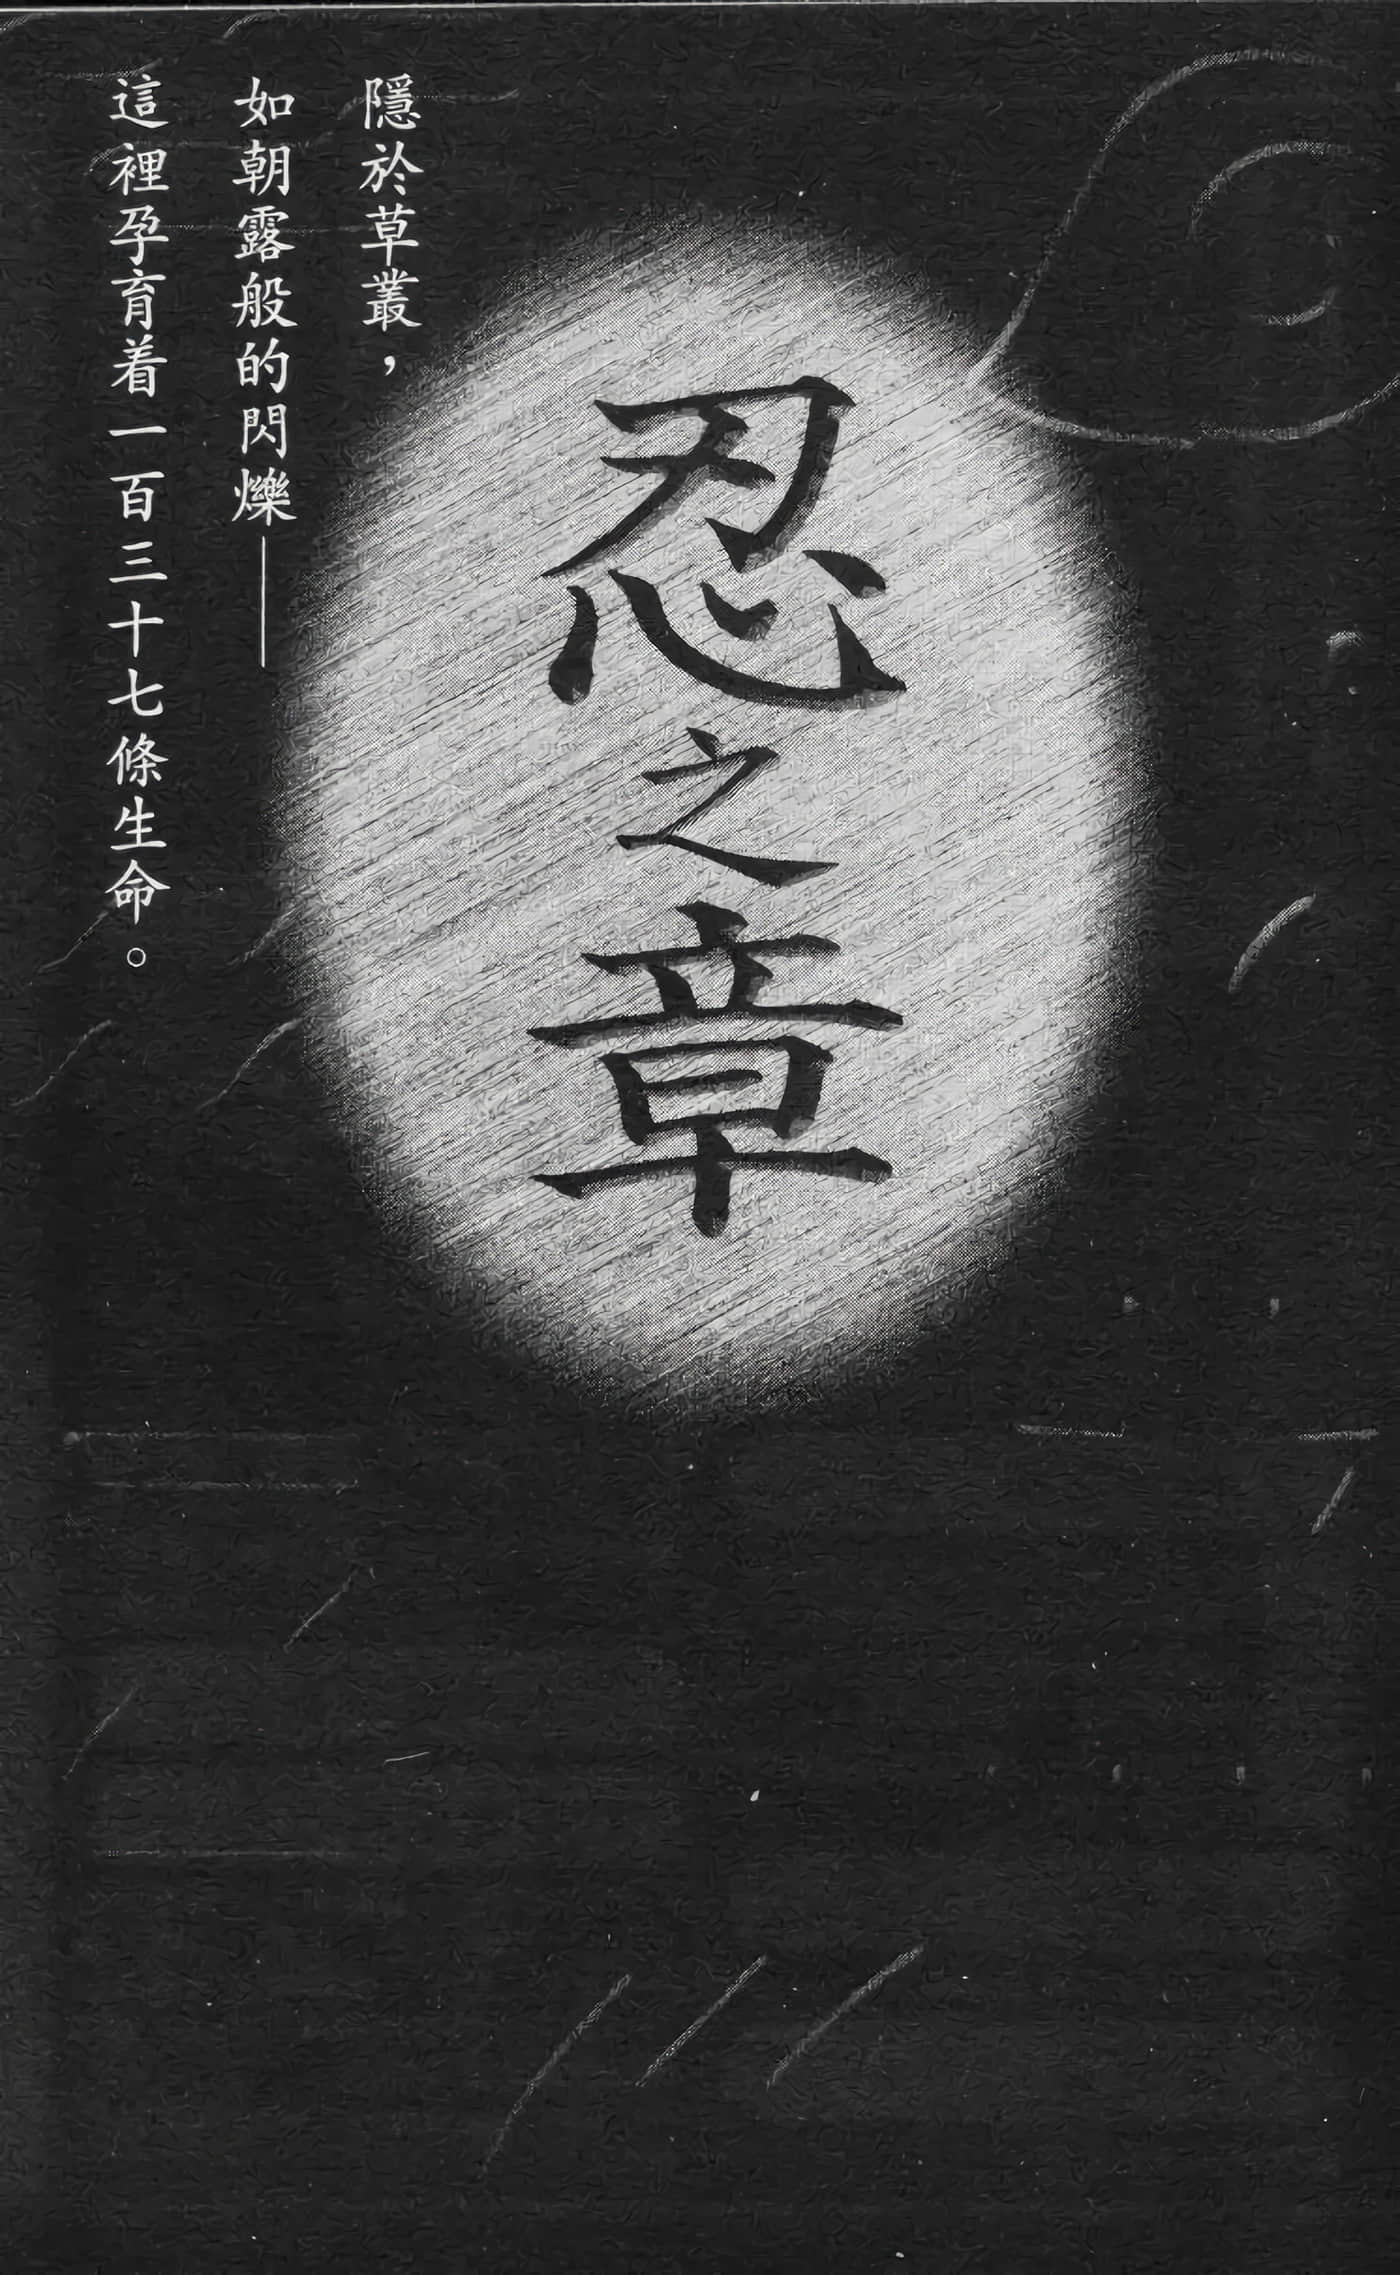 忍之章
隱於草叢，
如朝露般的閃爍——
這裡孕育着一百三十七條生命。